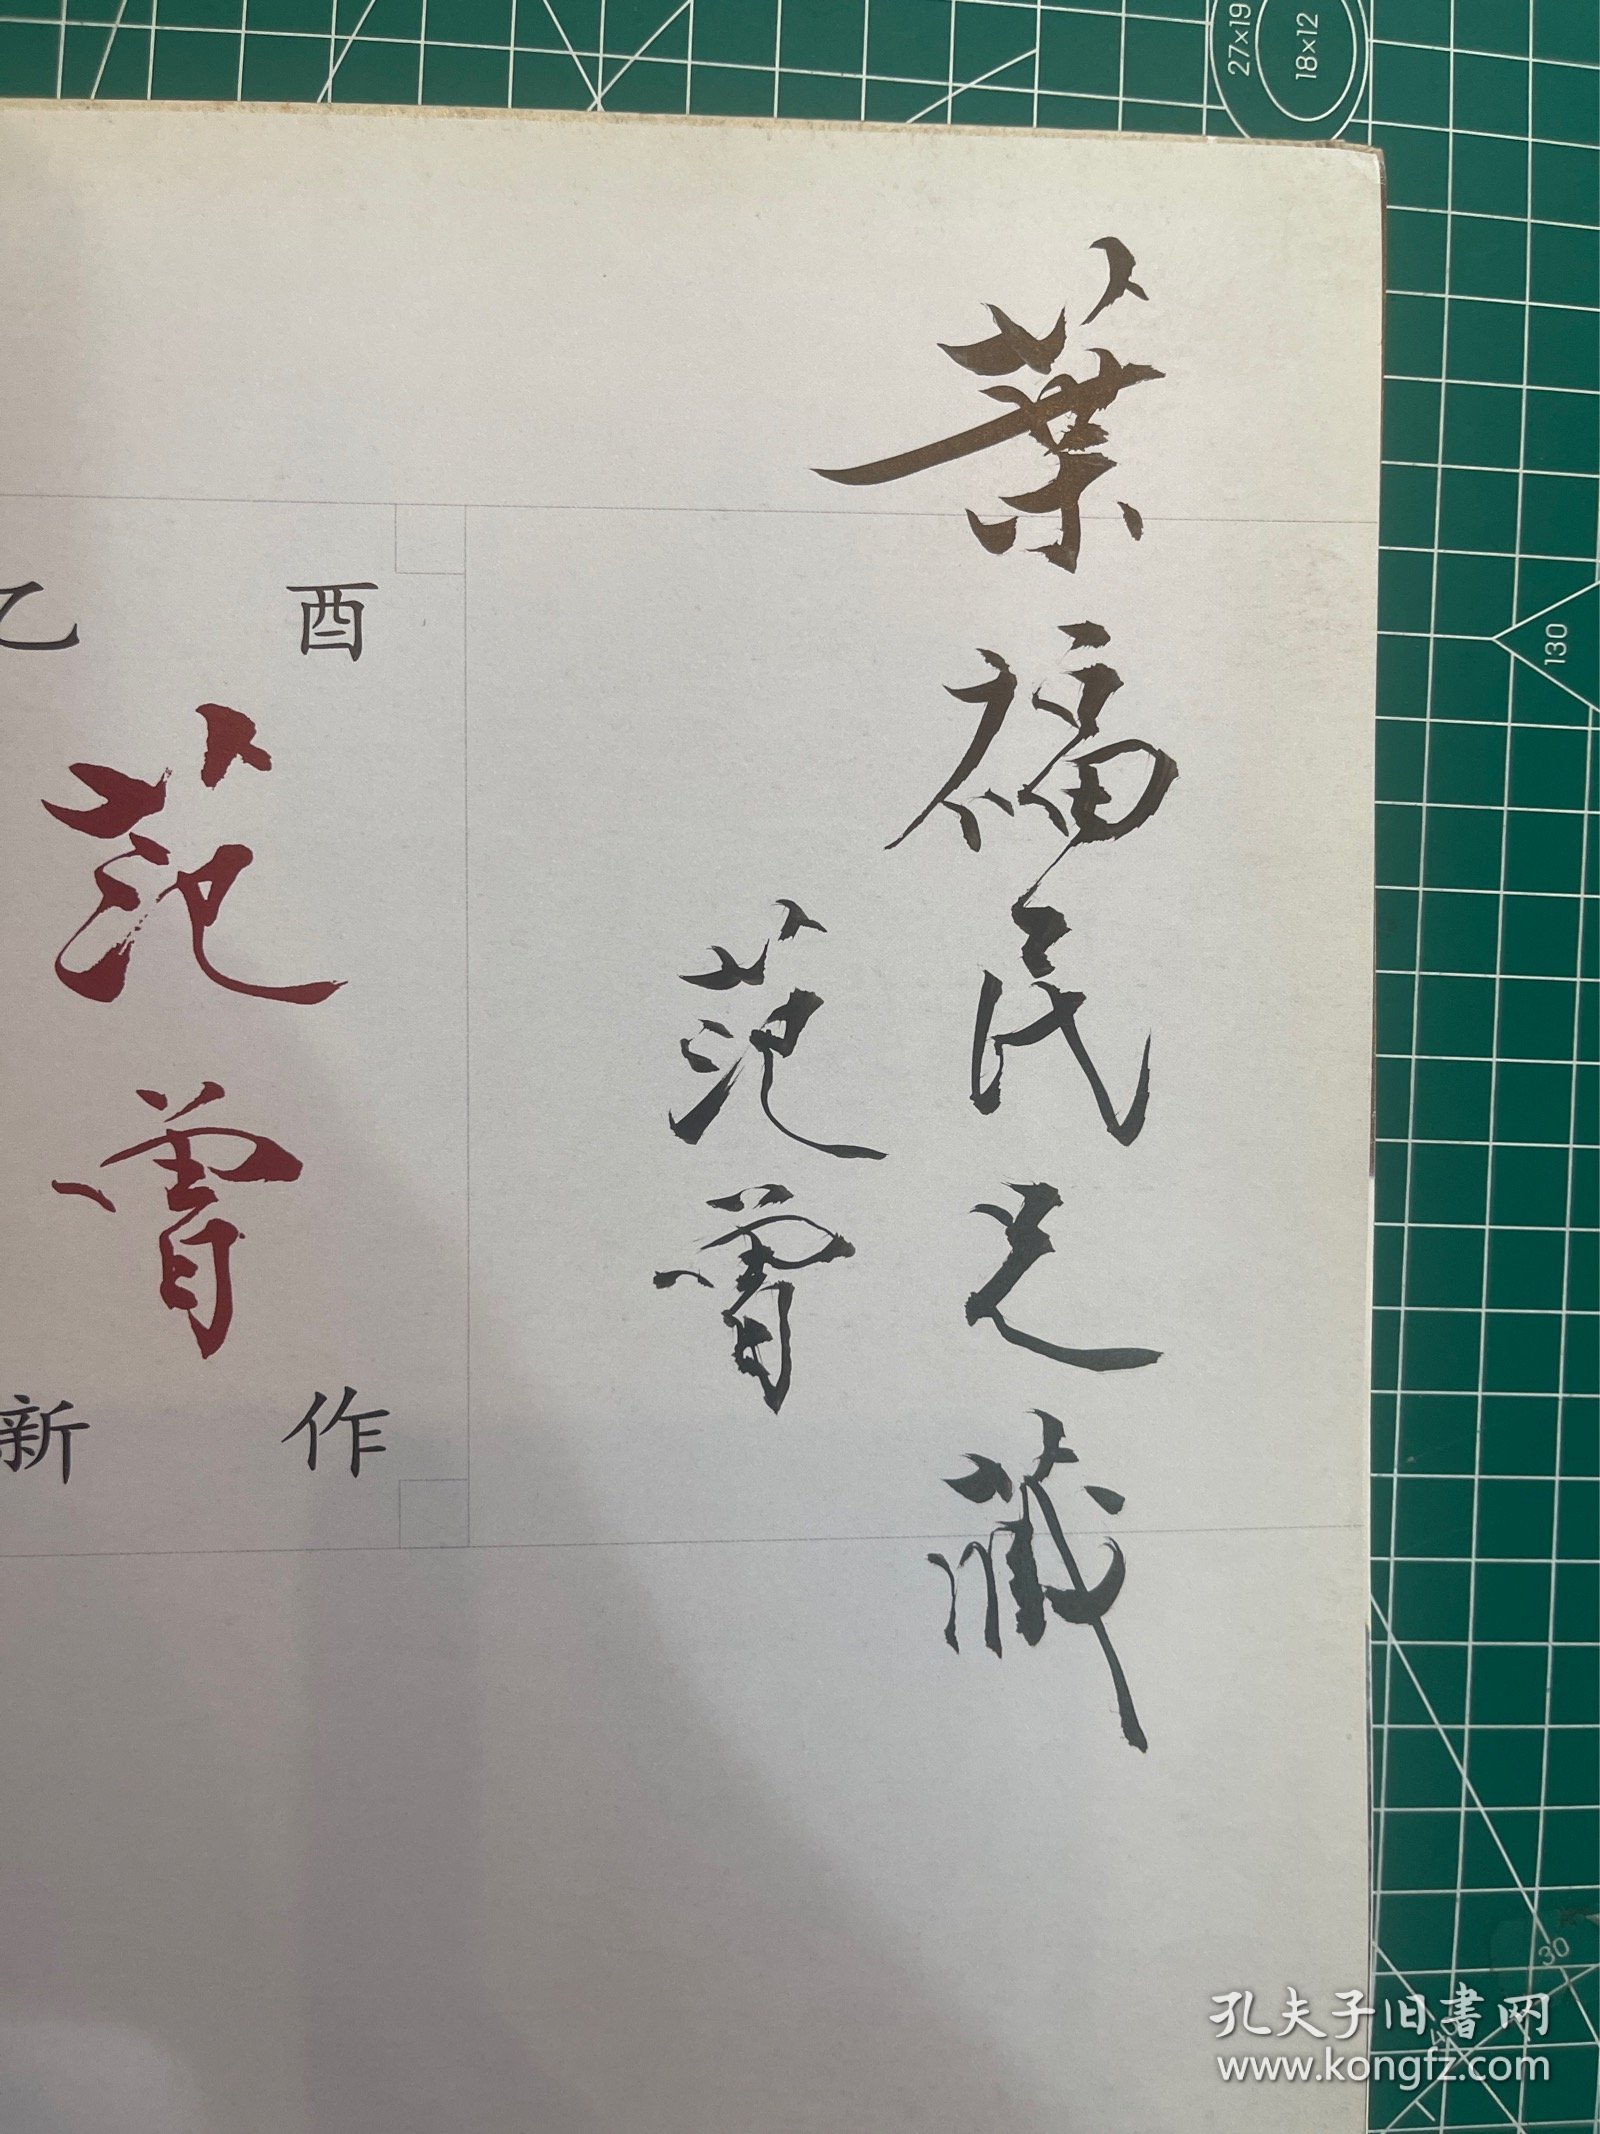 葉福民兄藏
范曾
乙酉
范曾
新作
27×19
18×12
130
30
40
孔夫子旧書网
www.kongfz.com